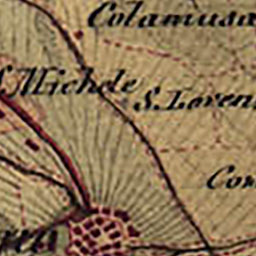 Colamusa
S. Michele
S. Loren
Con